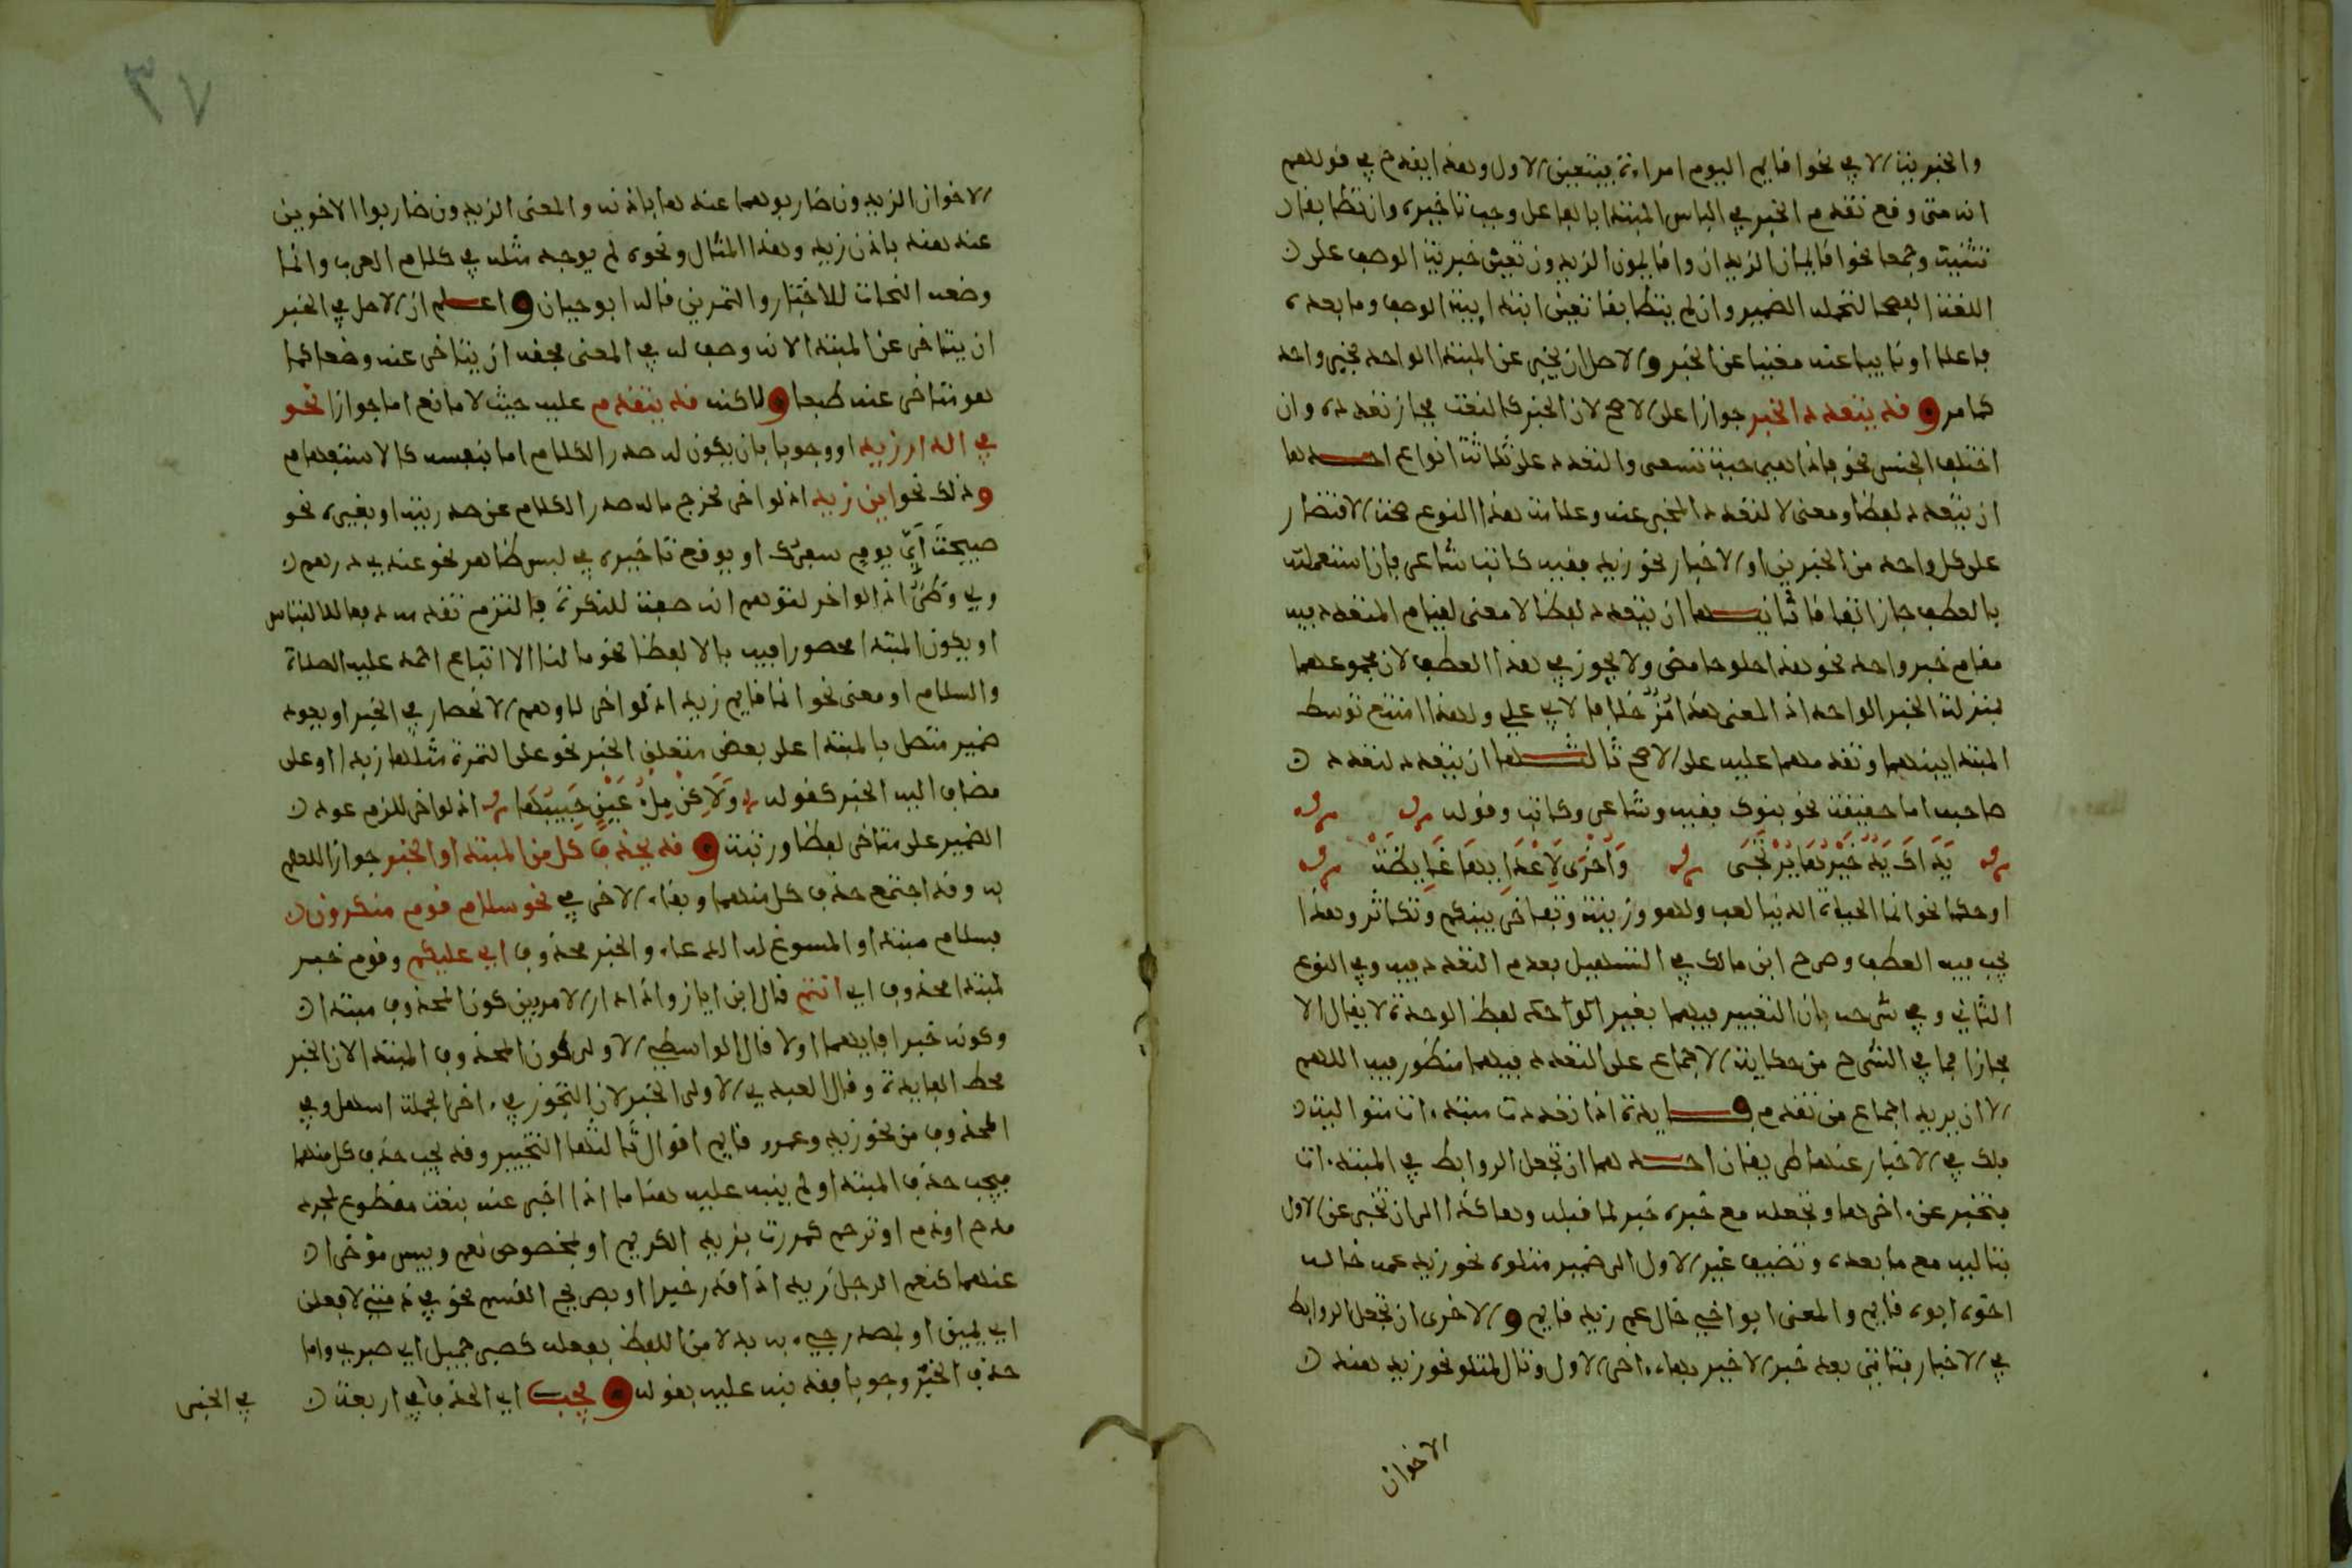 والخبرية الا في نحو اقايم اليوم امراة فيتعين الاول وهذا يقدح في قولهم
انه متى وقع تقدم الخبر في الباس المبتدا بالفاعل وجب تاخيره وان تطابقا
تثنية وجمعا نحو اقايمان الزيدان واقايمون الزيدون تعين خبرية الوصف على
اللغة الفصحا لتحمله الضمير وان لم يتطابقا تعين ابتداييّة الوصف وما بعده
فاعلا او نايبا عنه مغنيا عن الخبر والاصل ان يخبر عن المبتدا الواحد بخبر واحد
كما مر وقد يتعدد الخبر جوازا على الاصح لان الخبر كالنعت فجاز تعدده وان
اختلف الجنس نحو فاذا هي حية تسعى والتعدد على ثلاثة انواع احدها
ان يتعدد لفظا ومعنى لا لتعدد المخبر عنه وعلامة هذا النوع صحة الاقتصار
على كل واحد من الخبرين او الاخبار نحو زيد فقيه كاتب شاعر فان استعملته
بالعطف جاز اتفاقا ثانيها ان يتعدد لفظا لا معنى لقيام المتعدد فيه
مقام خبر واحد نحو هذا حلو حامض ولا يجوز في هذا العطف لان مجموعهما
بمنزلة الخبر الواحد اذ المعنى هذا مز خلافا لابي علي ولهذا امتنع توسط
المبتدا بينهما وتقدمهما عليه على الاصح ثالثها ان يتعدد لتعدد
صاحبه اما حقيقة نحو بنوك فقيه وشاعر وكاتب وقوله
يَدَاكَ يَدٌ خَيْرُهَا يُرْتَجَى وَأُخْرَى لِأَعْدَائِهَا غَائِظَةْ
او حكما نحو انما الحياة الدنيا لعب ولهو وزينة وتفاخر بينكم وتكاثر وهذا
يجب فيه العطف وصرح ابن مالك في التسهيل بعدم التعدد فيه وفي النوع
الثاني وفي شرحه بان التعبير فيهما بغير الواحد لفظ الوحدة لا يقال الا
مجازا فما في الشرح من حكاية الاجماع على التعدد فيهما منظور فيه اللهم
الا ان يريد اجماع من تقدم فايدة اذا تعددت مبتدءات متوالية
فلك في الاخبار عنها طريقان احدهما ان تجعل الروابط في المبتدءات
فتخبر عن اخرها وتجعله مع خبره خبر لما قبله وهاكذا الى ان تخبر عن الاول
بتاليه مع ما بعده وتضيف غير الاول الى ضمير متلوه نحو زيد عمه خاله
اخوه ابوه قايم والمعنى ابو اخي خال عم زيد قايم والاخرى ان تجعل الروابط
في الاخبار فتاتي بعد خبر الاخير بهاء اخر الاول وتال لمتلو نحو زيد هند
الاخوان
٣٧
الاخوان الزيدون ضاربوهما عندها باذنه والمعنى الزيدون ضاربوا الاخوين
عند هند باذن زيد وهذا المثال ونحوه لم يوجد مثله في كلام العرب وانما
وضعه النحات للاختبار والتمرين قاله ابو حيان واعلم ان الاصل في الخبر
ان يتاخر عن المبتدا لانه وصف له في المعنى فحقه ان يتاخر عنه وضعا كما
هو متاخر عنه طبعا ولاكنه قد يتقدم عليه حيث لا مانع اما جوازا نحو
في الدار زيد او وجوبا بان يكون له صدر الكلام اما بنفسه كالاستفهام
وذلك نحو اين زيد اذ لو اخر لخرج ماله صدر الكلام عن صدريته او بغيره نحو
صبيحت أيِّ يومٍ سفرك او يوقع تاخيره في لبس ظاهر نحو عندي درهم
ولي وَطَرٌ اذ لو اخر لتوهم انه صفة للنكرة فالتزم تقديمه دفعا للالتباس
او يكون المبتدا محصورا فيه بالا لفظا نحو ما لنا الا اتباع احمد عليه الصلاة
والسلام او معنى نحو انما قايم زيد اذ لو اخر لاوهم الانحصار في الخبر او يعود
ضمير متصل بالمبتدا على بعض متعلق الخبر نحو على التمرة مثلها زبدا او على
مضاف اليه الخبر كقوله وَلَاكِنْ مِلْءُ عَيْنٍ حَبِيبُهَا اذ لو اخر للزم عود
الضمير على متاخر لفظا ورتبة وقد يحذف كل من المبتدا والخبر جوازا للعلم
به وقد اجتمع حذف كل منهما وبقاء الاخر في نحو سلام قوم منكرون
فسلام مبتدا والمسوغ له الدعاء والخبر محذوف اي عليكم وقوم خبر
لمبتدا محذوف اي انتم قال ابن اياز واذا دار الامر بين كون المحذوف مبتدا
وكونه خبرا فايهما اولا قال الواسطي الاولى كون المحذوف المبتدا لان الخبر
محط الفايدة وقال العبدي الاولى الخبر لان التجوز في ءاخر الجملة اسهل وفي
المحذوف من نحو زيد وعمرو قايم اقوال ثالثها التخيير وقد يجب حذف كل منهما
فيجب حذف المبتدا ولم ينبه عليه هنا ما اذا اخبر عنه بنعت مقطوع لمجرد
مدح او ذم او ترحم كمررت بزيد الكريم او بمخصوص نعم وبيس مؤخرا
عنهما كنعم الرجل زيد اذا قدر خبرا او بصريح القسم نحو في ذمتي لافعلن
اي يمين او بمصدر جيء به بدلا من اللفظ بفعله كصبر جميل اي صبري واما
حذف الخبر وجوبا فقد نبه عليه بقوله ويجب اي الحذف في اربعة
في الخبر